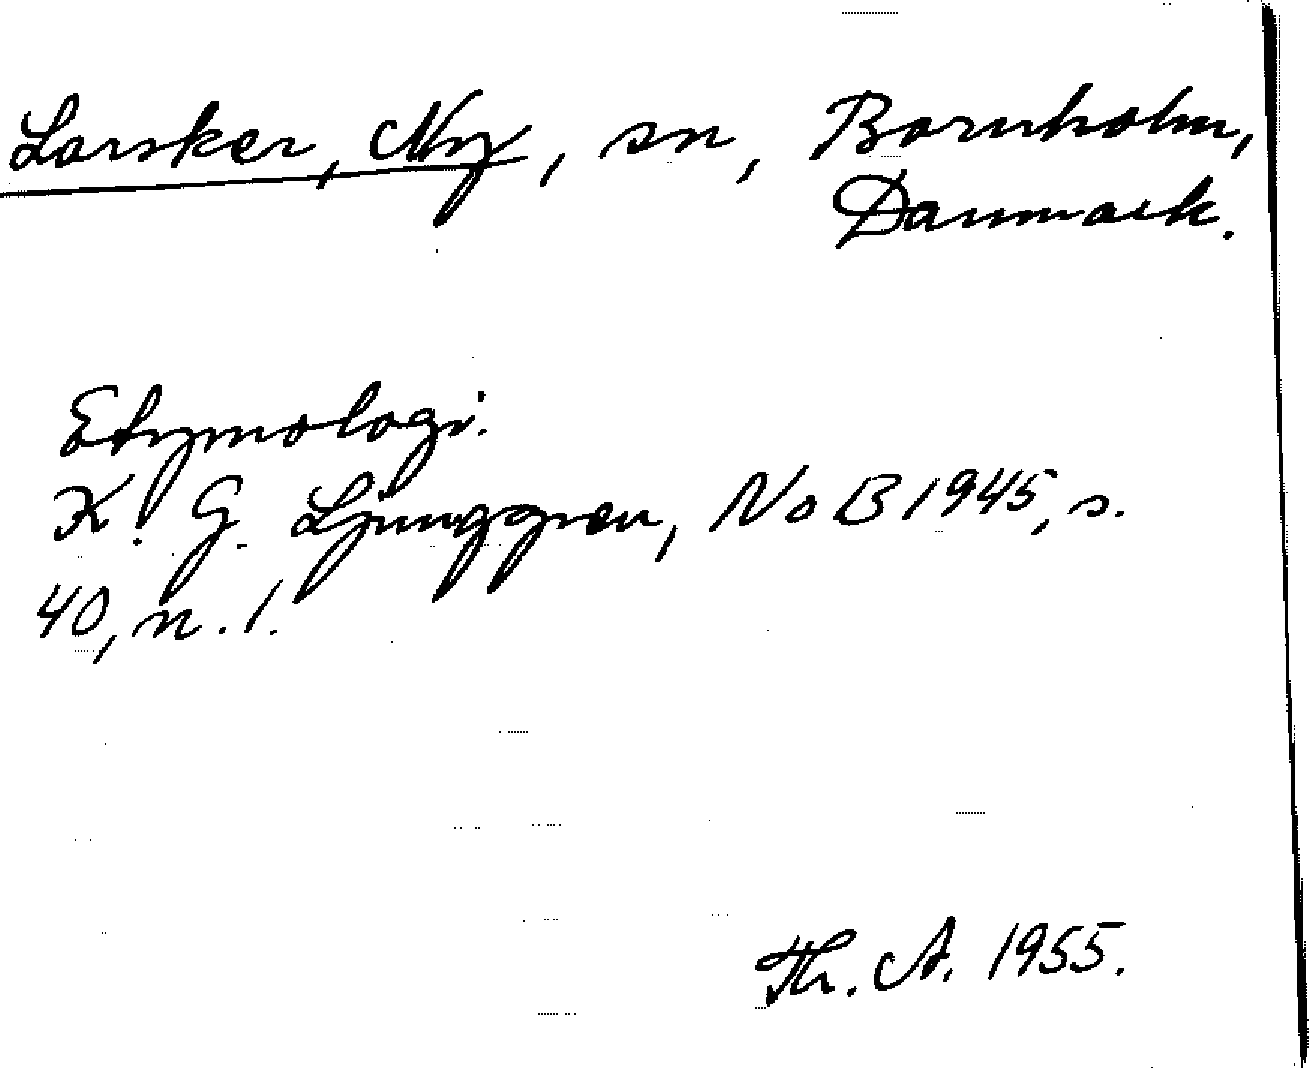 Larsker, Ny, sn, Bornholm,
Danmark.
Etymologi:
K. G. Ljunggren, NoB 1945, s.
40, n. 1.
Th. A. 1955.